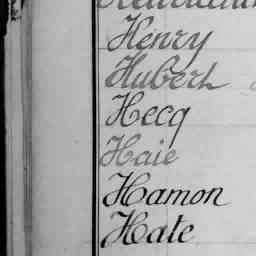 Henry
Hubert
Hecq
Haie
Hamon
Hate